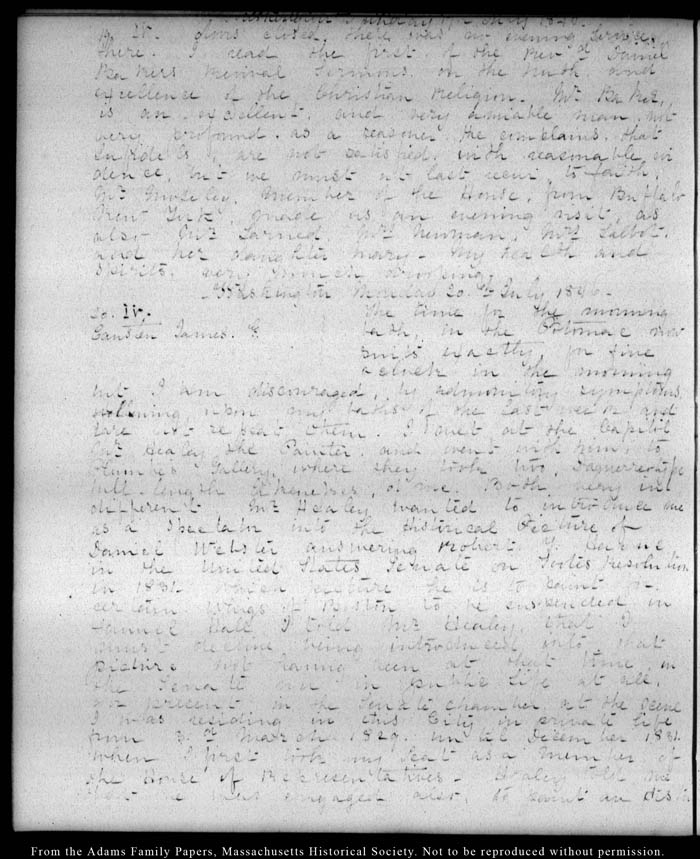 Washington Sunday 19. July 1846.
doors closed, there was no evening service
there. I read the first of the Revd Daniel
Bakers Revival Sermons on the truth and
excellence of the Christian religion. Mr Baker,
is an excellent, and very amiable man, not
very profound as a reasoner. He complains that
Infidels, are not satisfied with reasonable evi
dence, but we must at last recur to faith.
Mr Moseley, Member of the House, from Buffalo
New York, made us an evening visit, as
also Mrs Larned Mrs Newman, Mrs Talbot,
and her daughter Mary. My health and
spirits, very drooping.
Washington Monday 20. July 1846.
20. IV.
The time for the morning
Causten James. H.
bath, in the Potomac now
suits exactly, for five
o'clock in the morning
but I am discouraged, by admonitory symptoms,
following upon my baths of the last week and
dare not repeat them. I met at the Capitol
Mr Healey the Painter, and went with him, to
Plumbe's Gallery, where they took two, Daguerreotype
full length likenesses, of me. Both very in
different. Mr Healey wanted to introduce me
as a spectator into the Historical Picture of
Daniel Webster answering Robert Y. Hayne
in the United States Senate on Footes resolution
in 1831. which picture he is to paint for
certain Whigs of Boston to be suspended in
Faneuil Hall. I told Mr Healey, that I
must decline being introduced into that
picture not having been at that time in
the Senate nor in public life at all,
nor present in the Senate chamber at the scene
I was residing in this City in private life
from 3. March 1829. until December 1831.
when I first took my Seat as a member of
the House of Representatives. Healey told me
that he was engaged also, to paint an
From the Adams Family Papers, Massachusetts Historical Society. Not to be reproduced without permission.